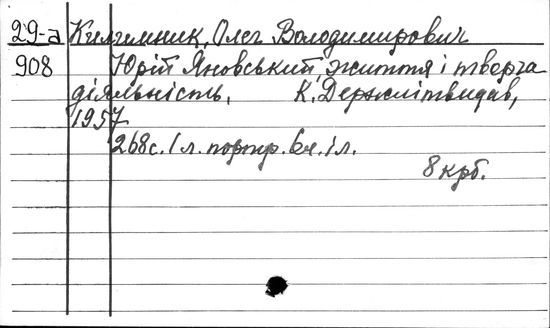 29-а Килимник, Олег Володимирович
908 Юрій Яновський, життя і творча
діяльність. К. Держлітвидав,
1957
268с. 1 л. портр. 6л. іл.
8 крб.